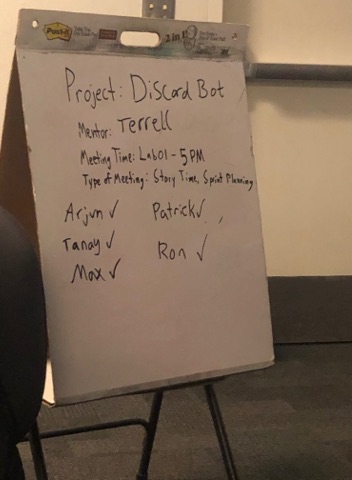 Post-it
2 in 1
Project: Discord Bot
Mentor: Terrell
Meeting Time: Lab01 - 5PM
Type of Meeting: Story Time, Sprint Planning
Arjun ✓ Patrick ✓
Tanay ✓ Ron ✓
Max ✓